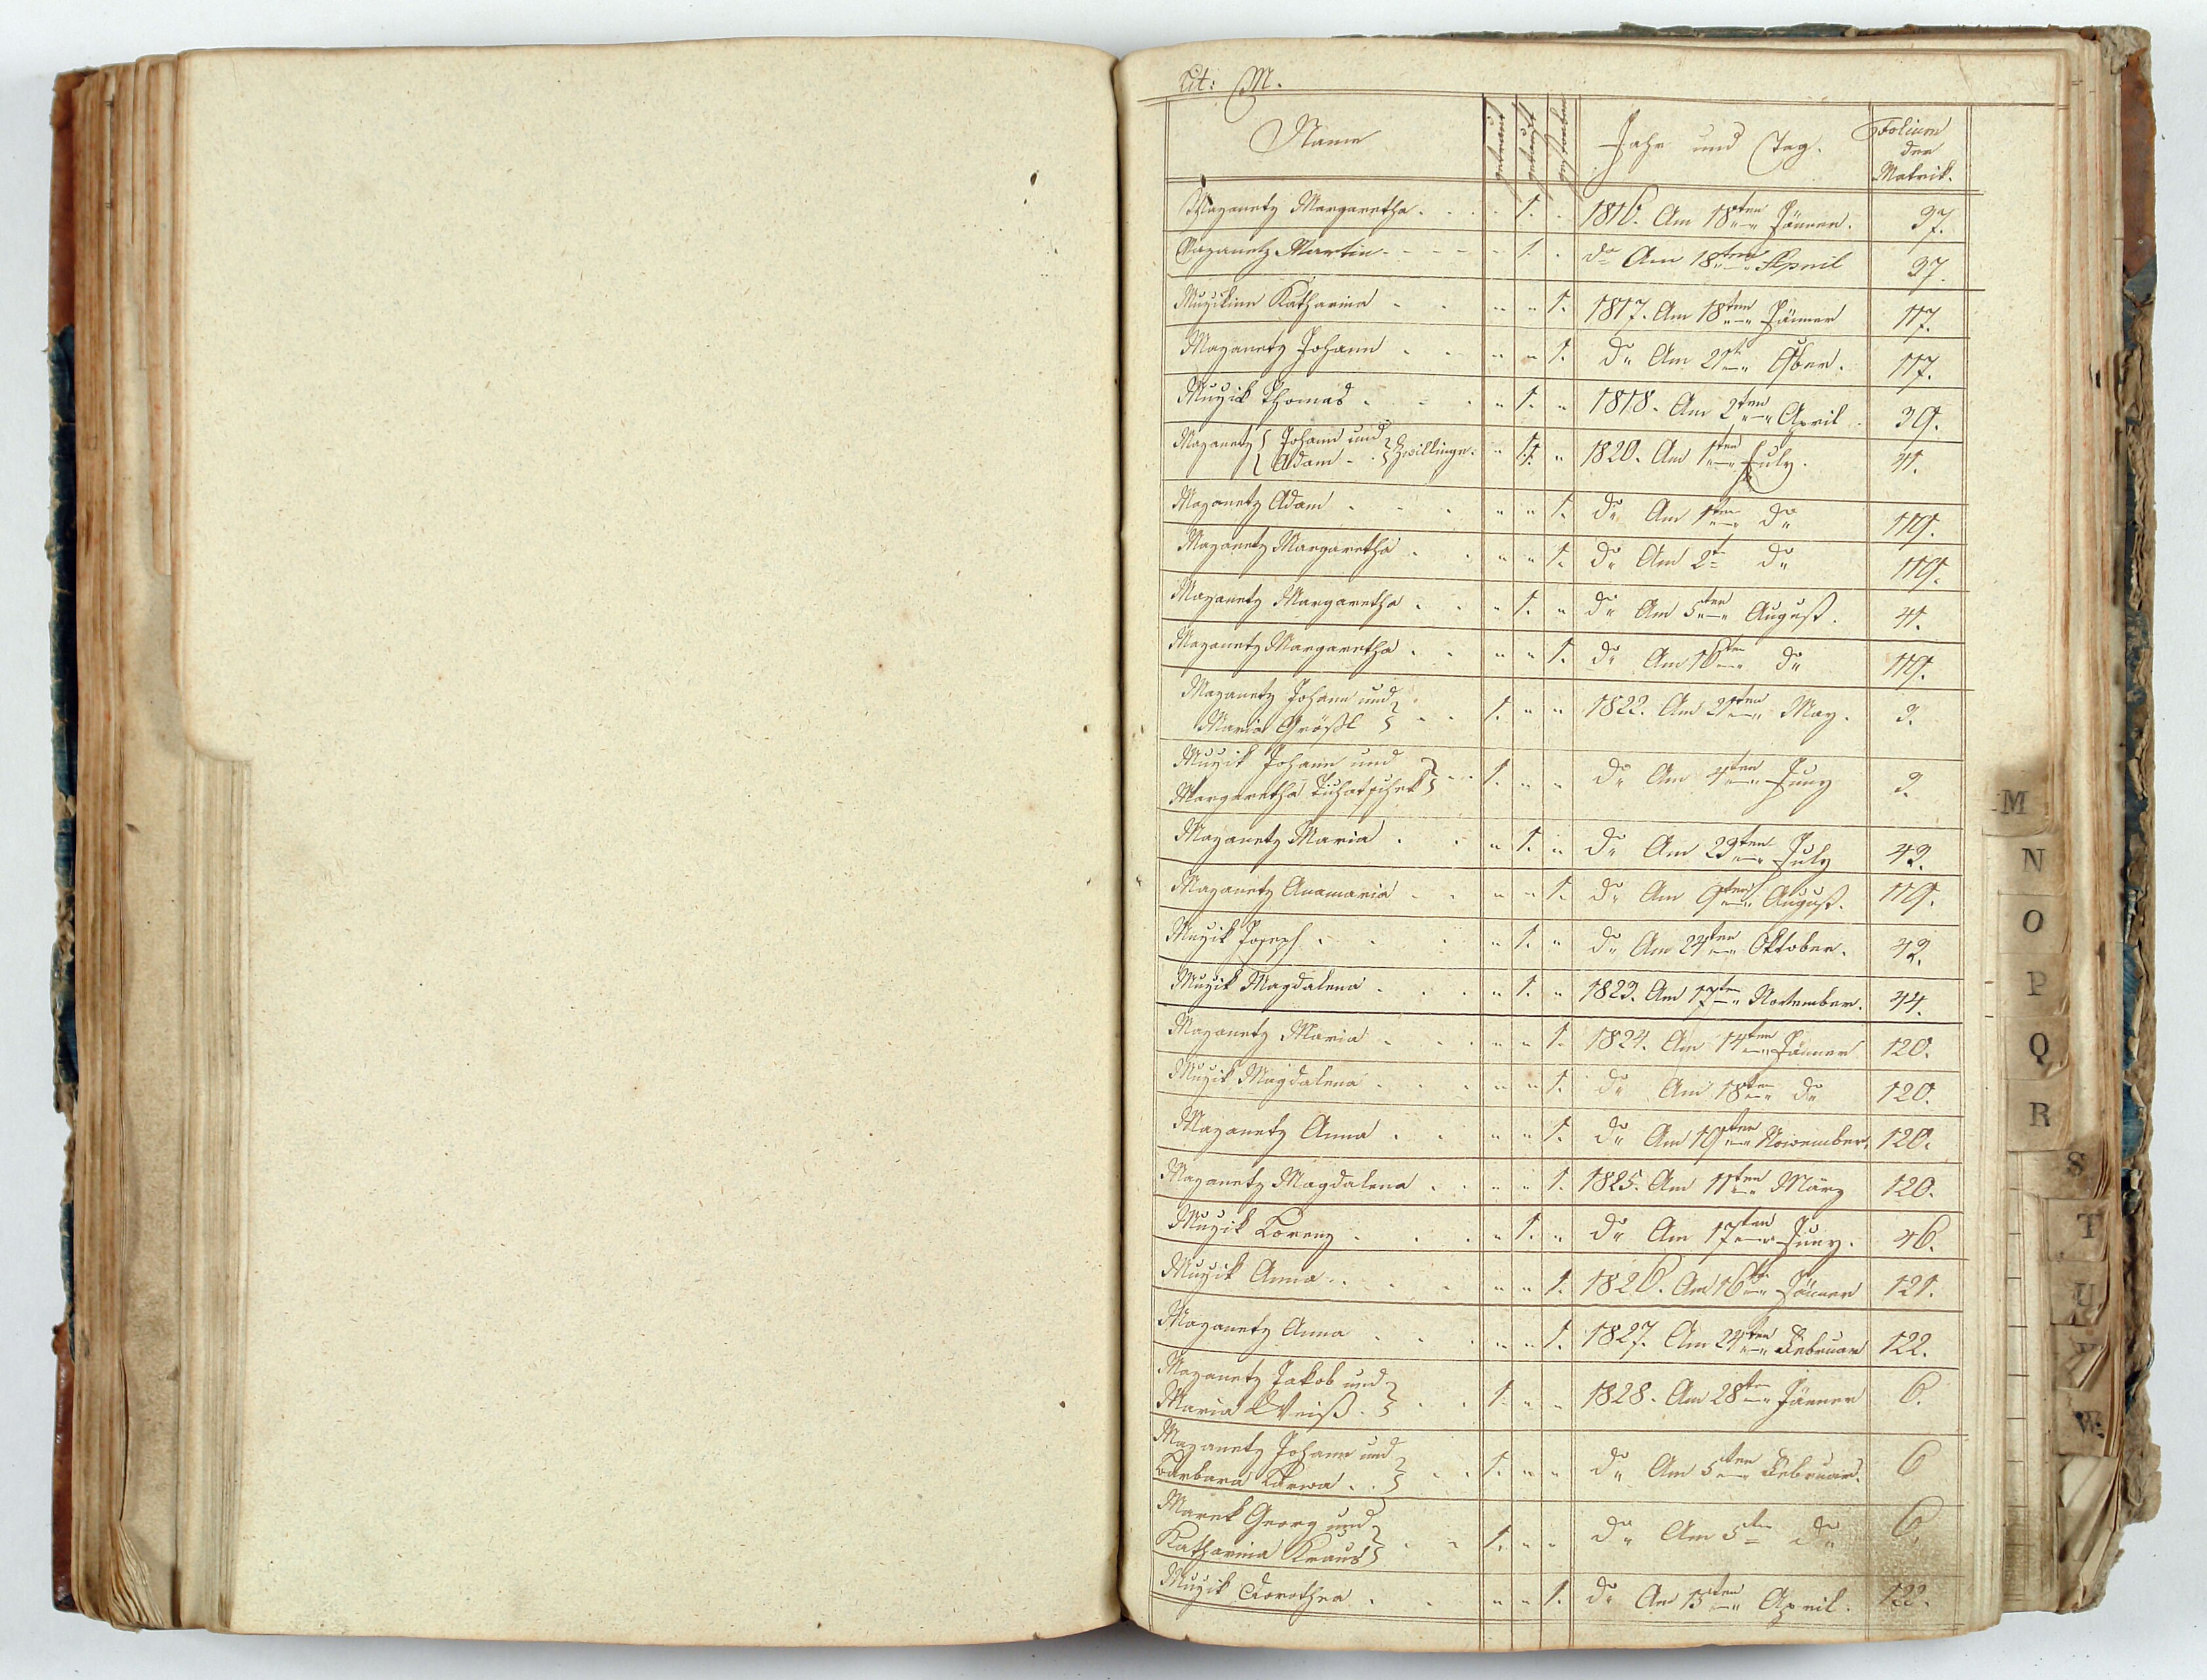 Lit: M.
Name getraut getauft gestorben Jahr und Tag. Folium der Matrik.
Mayanetz Margaretha . . . . 1. . 1816. Am 18ten Jänner. 37.
Mayanetz Martin - - - - - 1. . do Am 18ten April 37.
Muzikin Katharina - . " " 1. 1817. Am 18ten Jänner 117.
Mayanetz Johann . . . " " 1. do Am 21t 8ber. 117.
Muzik Thomas . - . " 1. " 1818. Am 2ten April . 39.
Mayanetz { Johann und
Adam - . } Zwillinge. " 1. 1. " 1820. Am 1ten July. 41.
Mayanetz Adam . - . " " 1. do Am 1ten do 119.
Mayanetz Margaretha . . " " 1. do Am 2t do 119.
Mayanetz Margaretha . . " 1. " do Am 5ten August. 41.
Mayanetz Margaretha . . " " 1. do Am 16ten do 119.
Mayanetz Johann und
Maria Größl } . . 1. " " 1822. Am 21ten May. 3.
Muzik Johann und
Margaretha Tuhatschek } . . 1. " " do Am 4ten Juny 3.
Mayanetz Maria . . " 1. " do Am 23ten July 43.
Mayanetz Anamaria . . " " 1. do Am 9ten August. 119.
Muzik Joseph . . . " 1. " do Am 24ten Oktober. 43.
Muzik Magdalena . . . " 1. " 1823. Am 17ten November. 44.
Mayanetz Maria . . . " " 1. 1824. Am 14ten Jänner 120.
Muzik Magdalena . . . " " 1. do Am 18ten do 120.
Mayanetz Anna . . " " 1. do Am 19ten November. 120.
Mayanetz Magdalena . . " " 1. 1825. Am 11ten März 120.
Muzik Lorenz . . . " 1. " do Am 17ten Juny. 46.
Muzik Anna . . . . " " 1. 1826. Am 16ten Jänner 121.
Mayanetz Anna . . . " " 1. 1827. Am 24ten Februar 122.
Mayanetz Jakob und
Maria Weiß. } . . 1. " " 1828. Am 28ten Jänner 6.
Mayanetz Johann und
Barbara . . } . . 1. " " do Am 5ten Februar. 6
Marek Georg und
Katharina Kraus } . . 1. " " do Am 5ten do 6.
Muzik Dorothea . . " " 1. do Am 15ten April. 122.
M
N
O
P
Q
R
S
T
U
V
W.